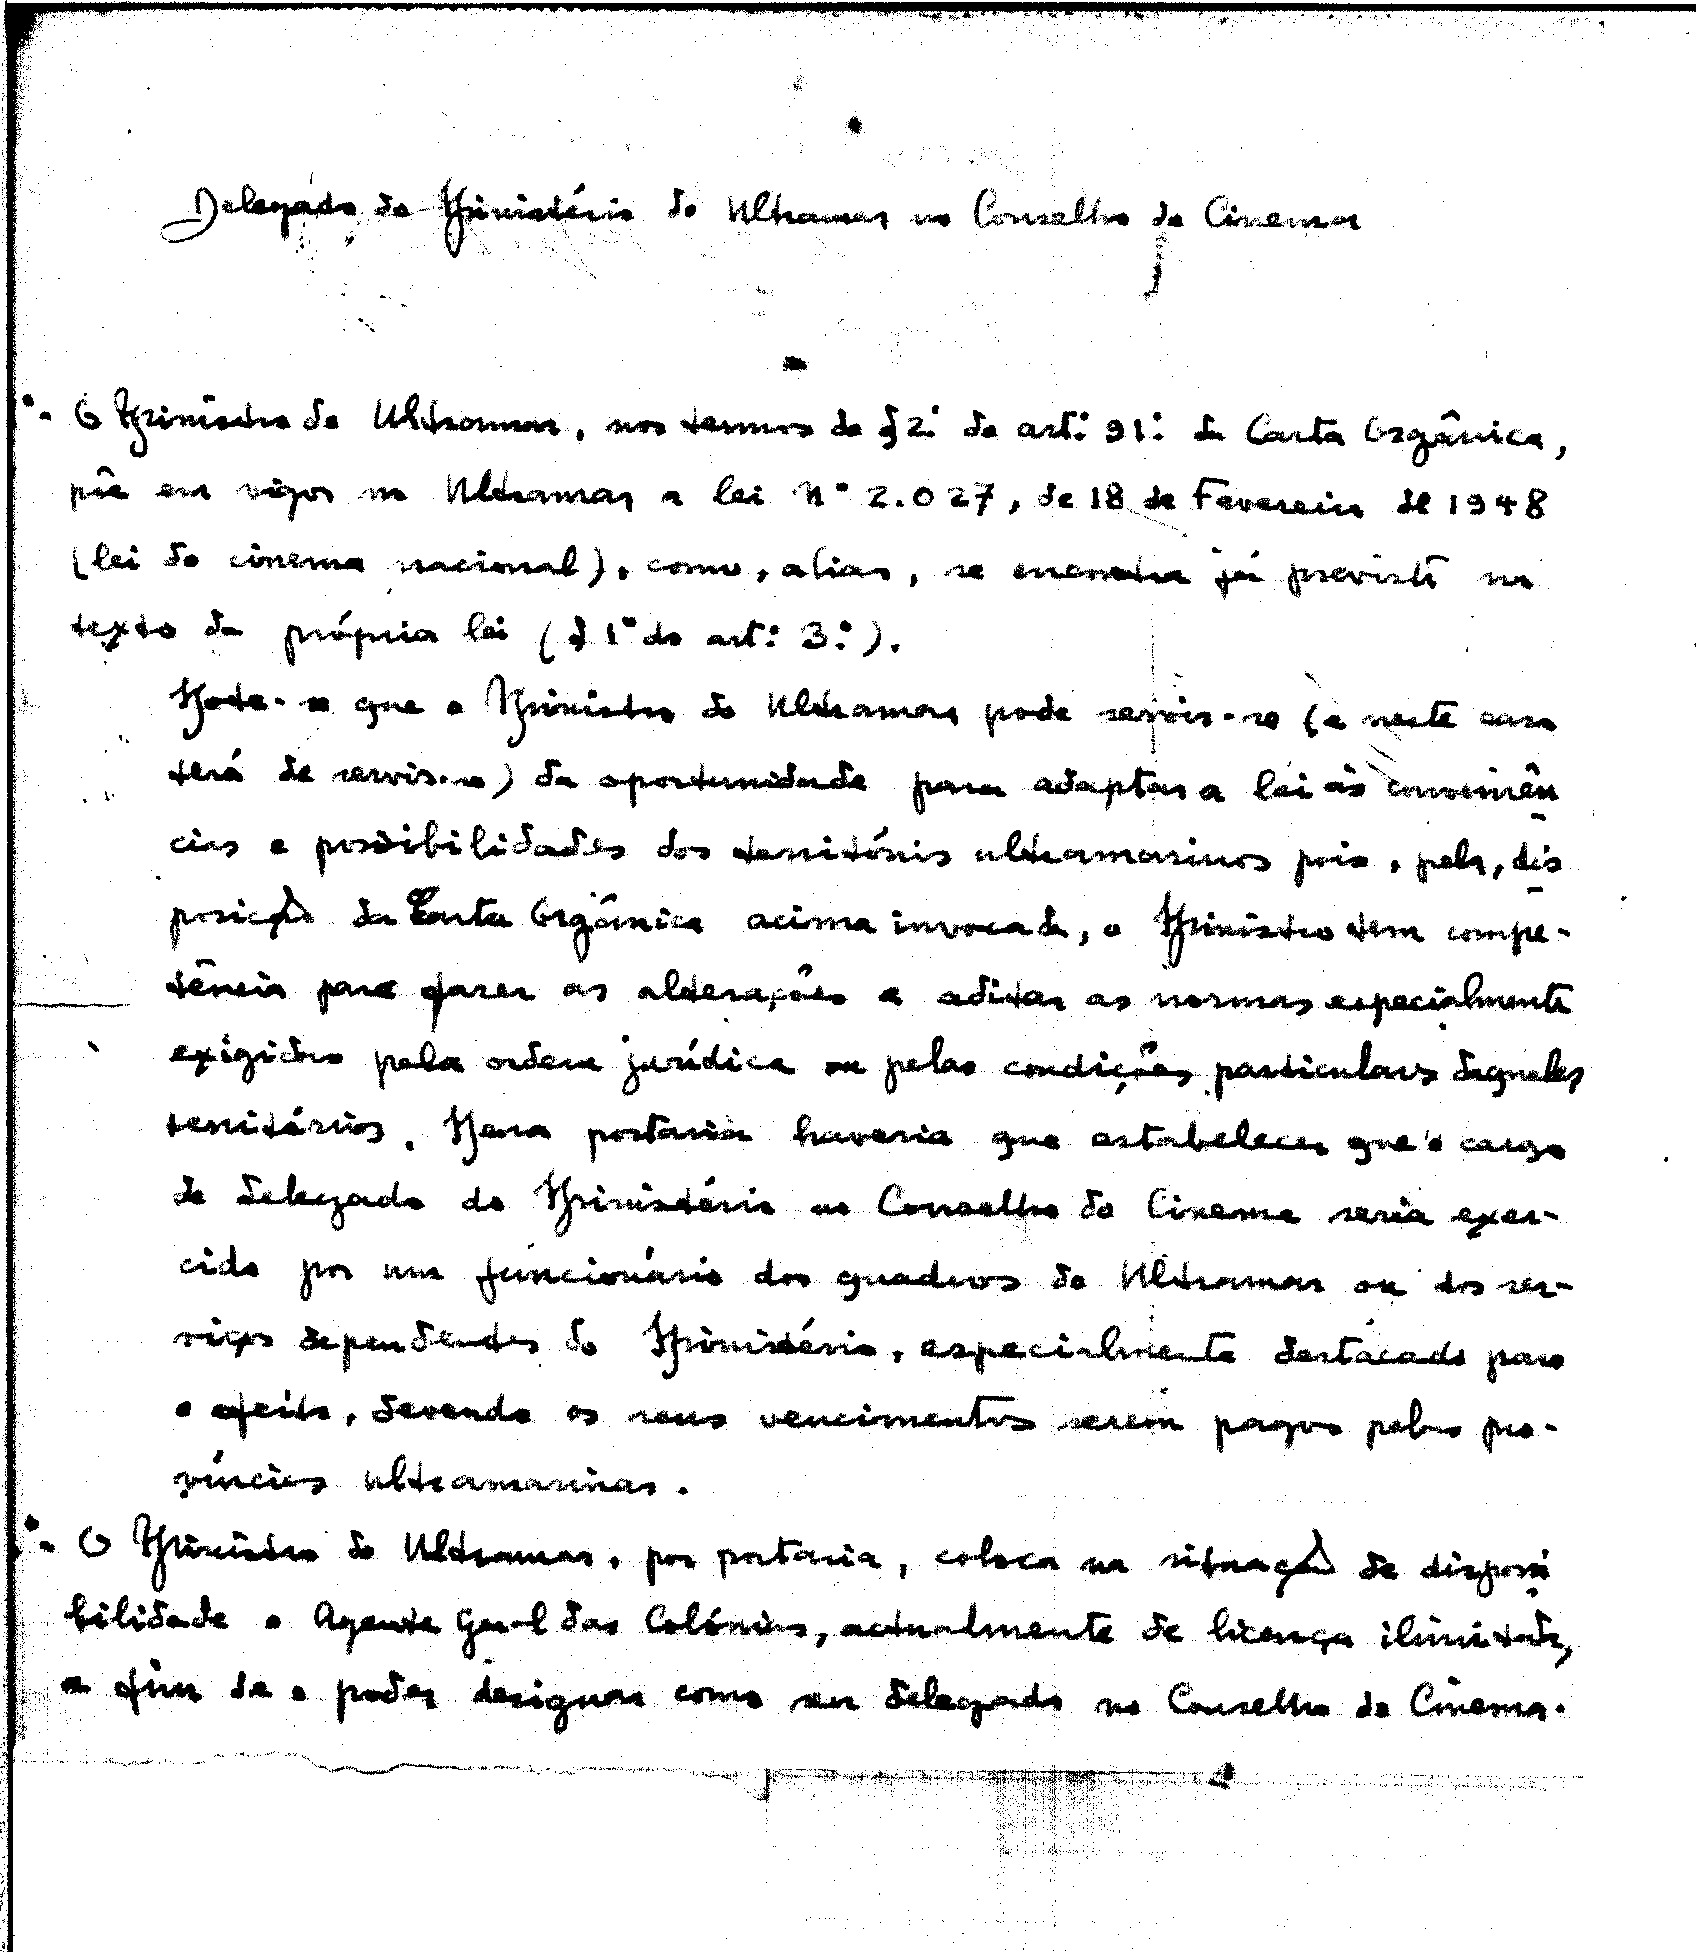 Delegado do Ministério do Ultramar no Conselho do Cinema
º- O Ministro do Ultramar, nos termos do § 2º do art.º 91º da Carta Orgânica,
põe em vigor no Ultramar a lei Nº 2.027, de 18 de Fevereiro de 1948
(lei do cinema nacional), como, alias, se encontra já previsto no
texto da própria lei (§ 1º do art.º 3.º).
Note-se que o Ministro do Ultramar pode servir-se (e neste caso
terá de servir-se) da oportunidade para adaptar a lei às conveniên
cias e possibilidades dos territórios ultramarinos pois, pela, dis
posição da Carta Orgânica acima invocada, o Ministro tem compe-
tência para fazer as alterações e aditar as normas especialmente
exigidas pela ordem jurídica ou pelas condições particulares daqueles
territórios. Nessa portaria haveria que estabelecer que o cargo
de delegado do Ministério no Conselho do Cinema seria exer-
cido por um funcionário dos quadros do Ultramar ou dos ser-
viços dependentes do Ministério, especialmente destacado para
o efeito, devendo os seus vencimentos serem pagos pelas pro-
víncias ultramarinas.
º- O Ministro do Ultramar, por portaria, coloca na situação de disponi
bilidade o Agente Geral das Colónias, actualmente de licença ilimitada,
a fim de o poder designar como seu delegado no Conselho do Cinema.